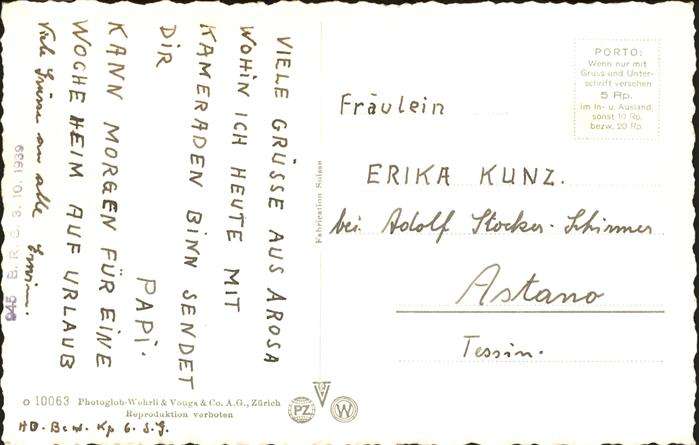 VIELE GRÜSSE AUS AROSA
WOHIN ICH HEUTE MIT
KAMERADEN BINN SENDET
DIR
PAPI.
KANN MORGEN FÜR EINE
WOCHE HEIM AUF URLAUB
Viele Grüsse an alle Erwin.
B.R.B. 3.10.1939
Fabrication Suisse
PORTO:
Wenn nur mit
Gruss und Unter-
schrift versehen
5 Rp.
im In- u. Ausland,
sonst 10 Rp.
bezw. 20 Rp.
Fräulein
ERIKA KUNZ.
bei Adolf Stocker-Schirmer
Astano
Tessin.
10063 Photoglob-Wehrli & Vouga & Co. A.G., Zürich
Reproduktion verboten
PZ
W
HD. Bew. Kp 6.